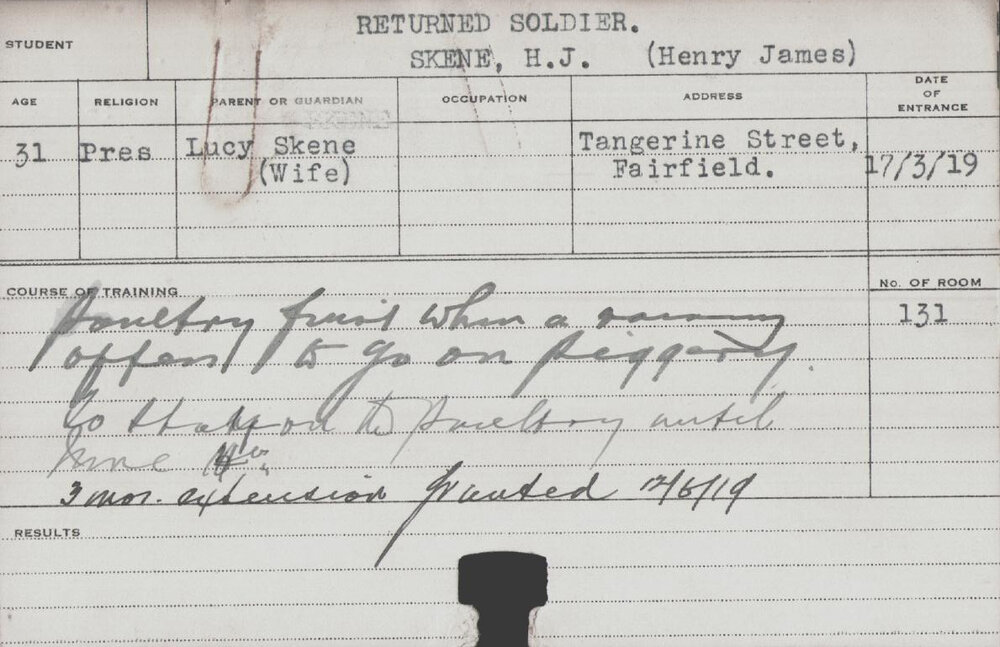 RETURNED SOLDIER.
STUDENT
SKENE, H.J. (Henry James)
AGE RELIGION PARENT OR GUARDIAN OCCUPATION ADDRESS DATE OF ENTRANCE
31 Pres Lucy Skene Tangerine Street,
(Wife) Fairfield. 17/3/19
COURSE OF TRAINING No. OF ROOM
Poultry first when a 131
offers to go on piggery.
To stay on the Poultry until
June
3 mos. extension granted 12/6/19
RESULTS